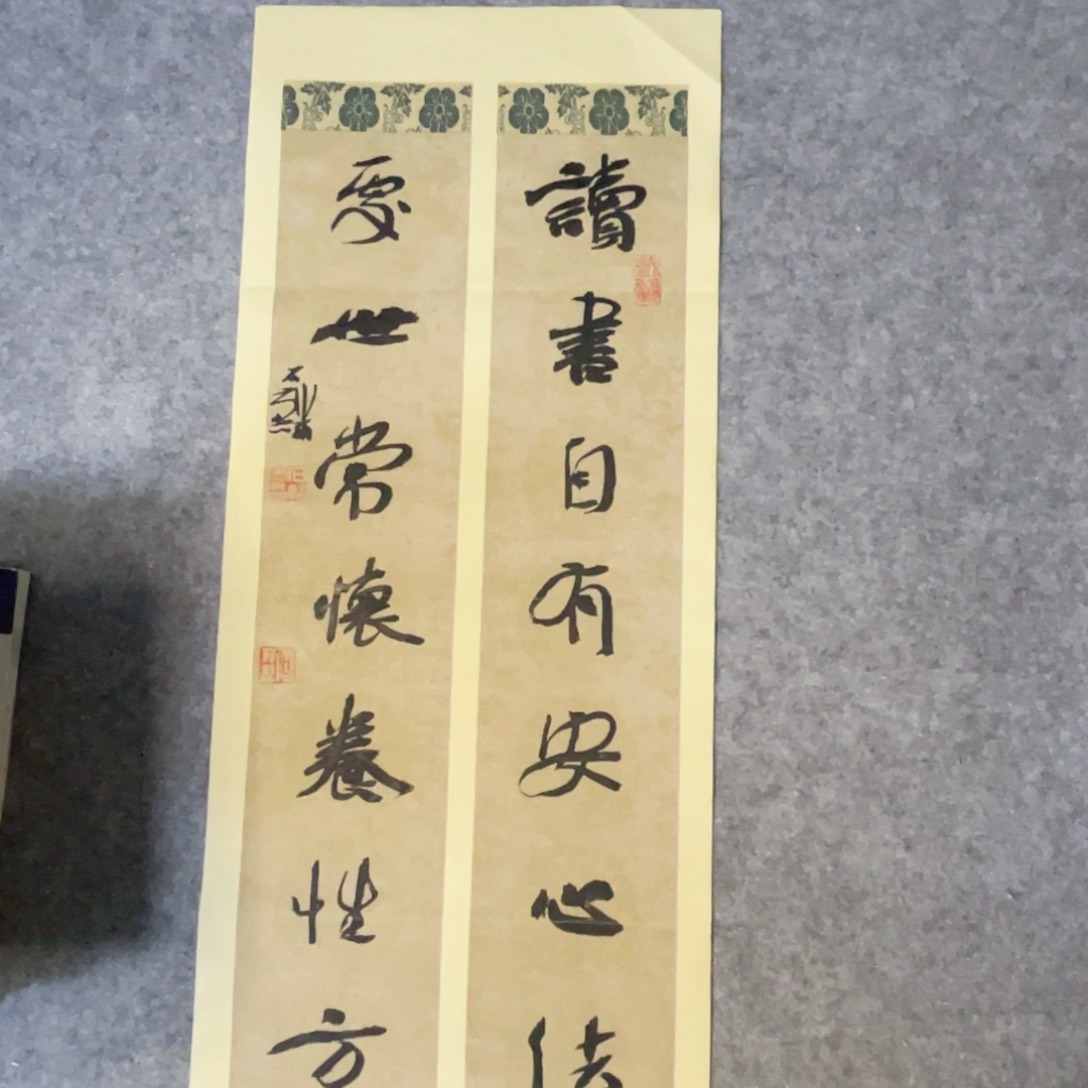 讀書自有安心法
處世常懷養性方